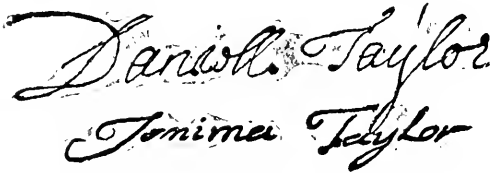 Daniell Taylor
Jonima Taylor